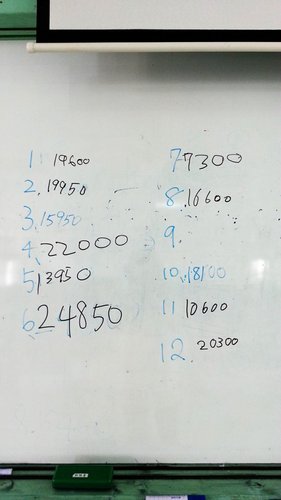 1. 19600
2. 19950
3. 15950
4. 22000
5. 13950
6. 24850
7. 7300
8. 16600
9.
10. 18100
11. 10600
12. 20300